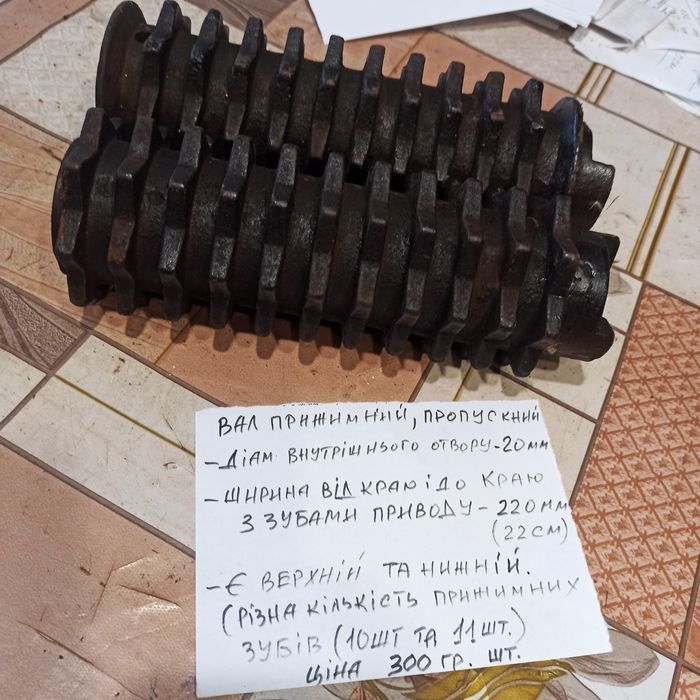 ВАЛ ПРИЖИМНИЙ, ПРОПУСКНИЙ
- ДІАМ ВНУТРІШНЬОГО ОТВОРУ - 20 ММ
- ШИРИНА ВІД КРАЮ І ДО КРАЮ
З ЗУБАМИ ПРИВОДУ - 220 ММ
(22 СМ)
- Є ВЕРХНІЙ ТА НИЖНІЙ.
(РІЗНА КІЛЬКІСТЬ ПРИЖИМНИХ
ЗУБІВ (10ШТ ТА 11ШТ.)
ЦІНА 300 ГР. ШТ.